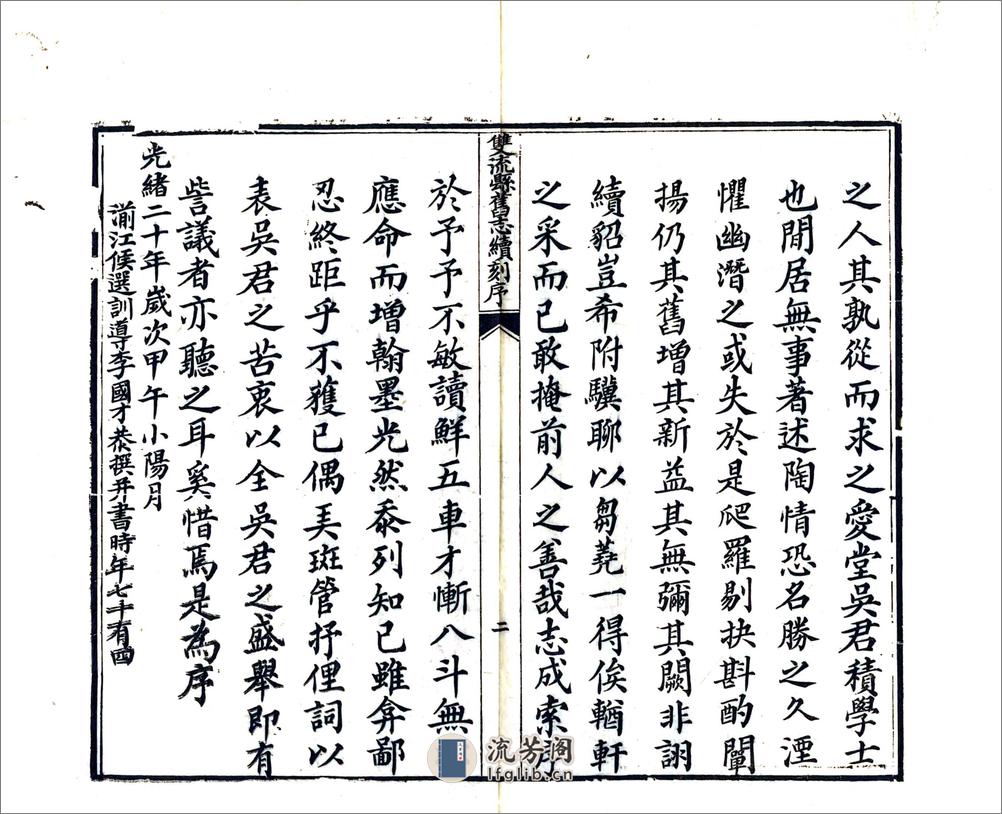 之人其孰從而求之愛堂吳君積學士
也閒居無事著述陶情恐名勝之久湮
懼幽潛之或失於是爬羅剔抉斟酌闡
揚仍其舊增其新益其無彌其闕非詡
續貂豈希附驥聊以芻蕘一得俟輶軒
之采而已敢掩前人之善哉志成索序
雙流縣舊志續刻序
二
於予予不敏讀鮮五車才慚八斗無
應命而增翰墨光然忝列知己雖弇鄙
忍終距乎不獲已偶弄斑管抒俚詞以
表吳君之苦衷以全吳君之盛舉即有
訾議者亦聽之耳奚惜焉是為序
光緒二十年歲次甲午小陽月
湔江候選訓導李國才恭撰并書時年七十有四
流芳阁
lfglib.cn